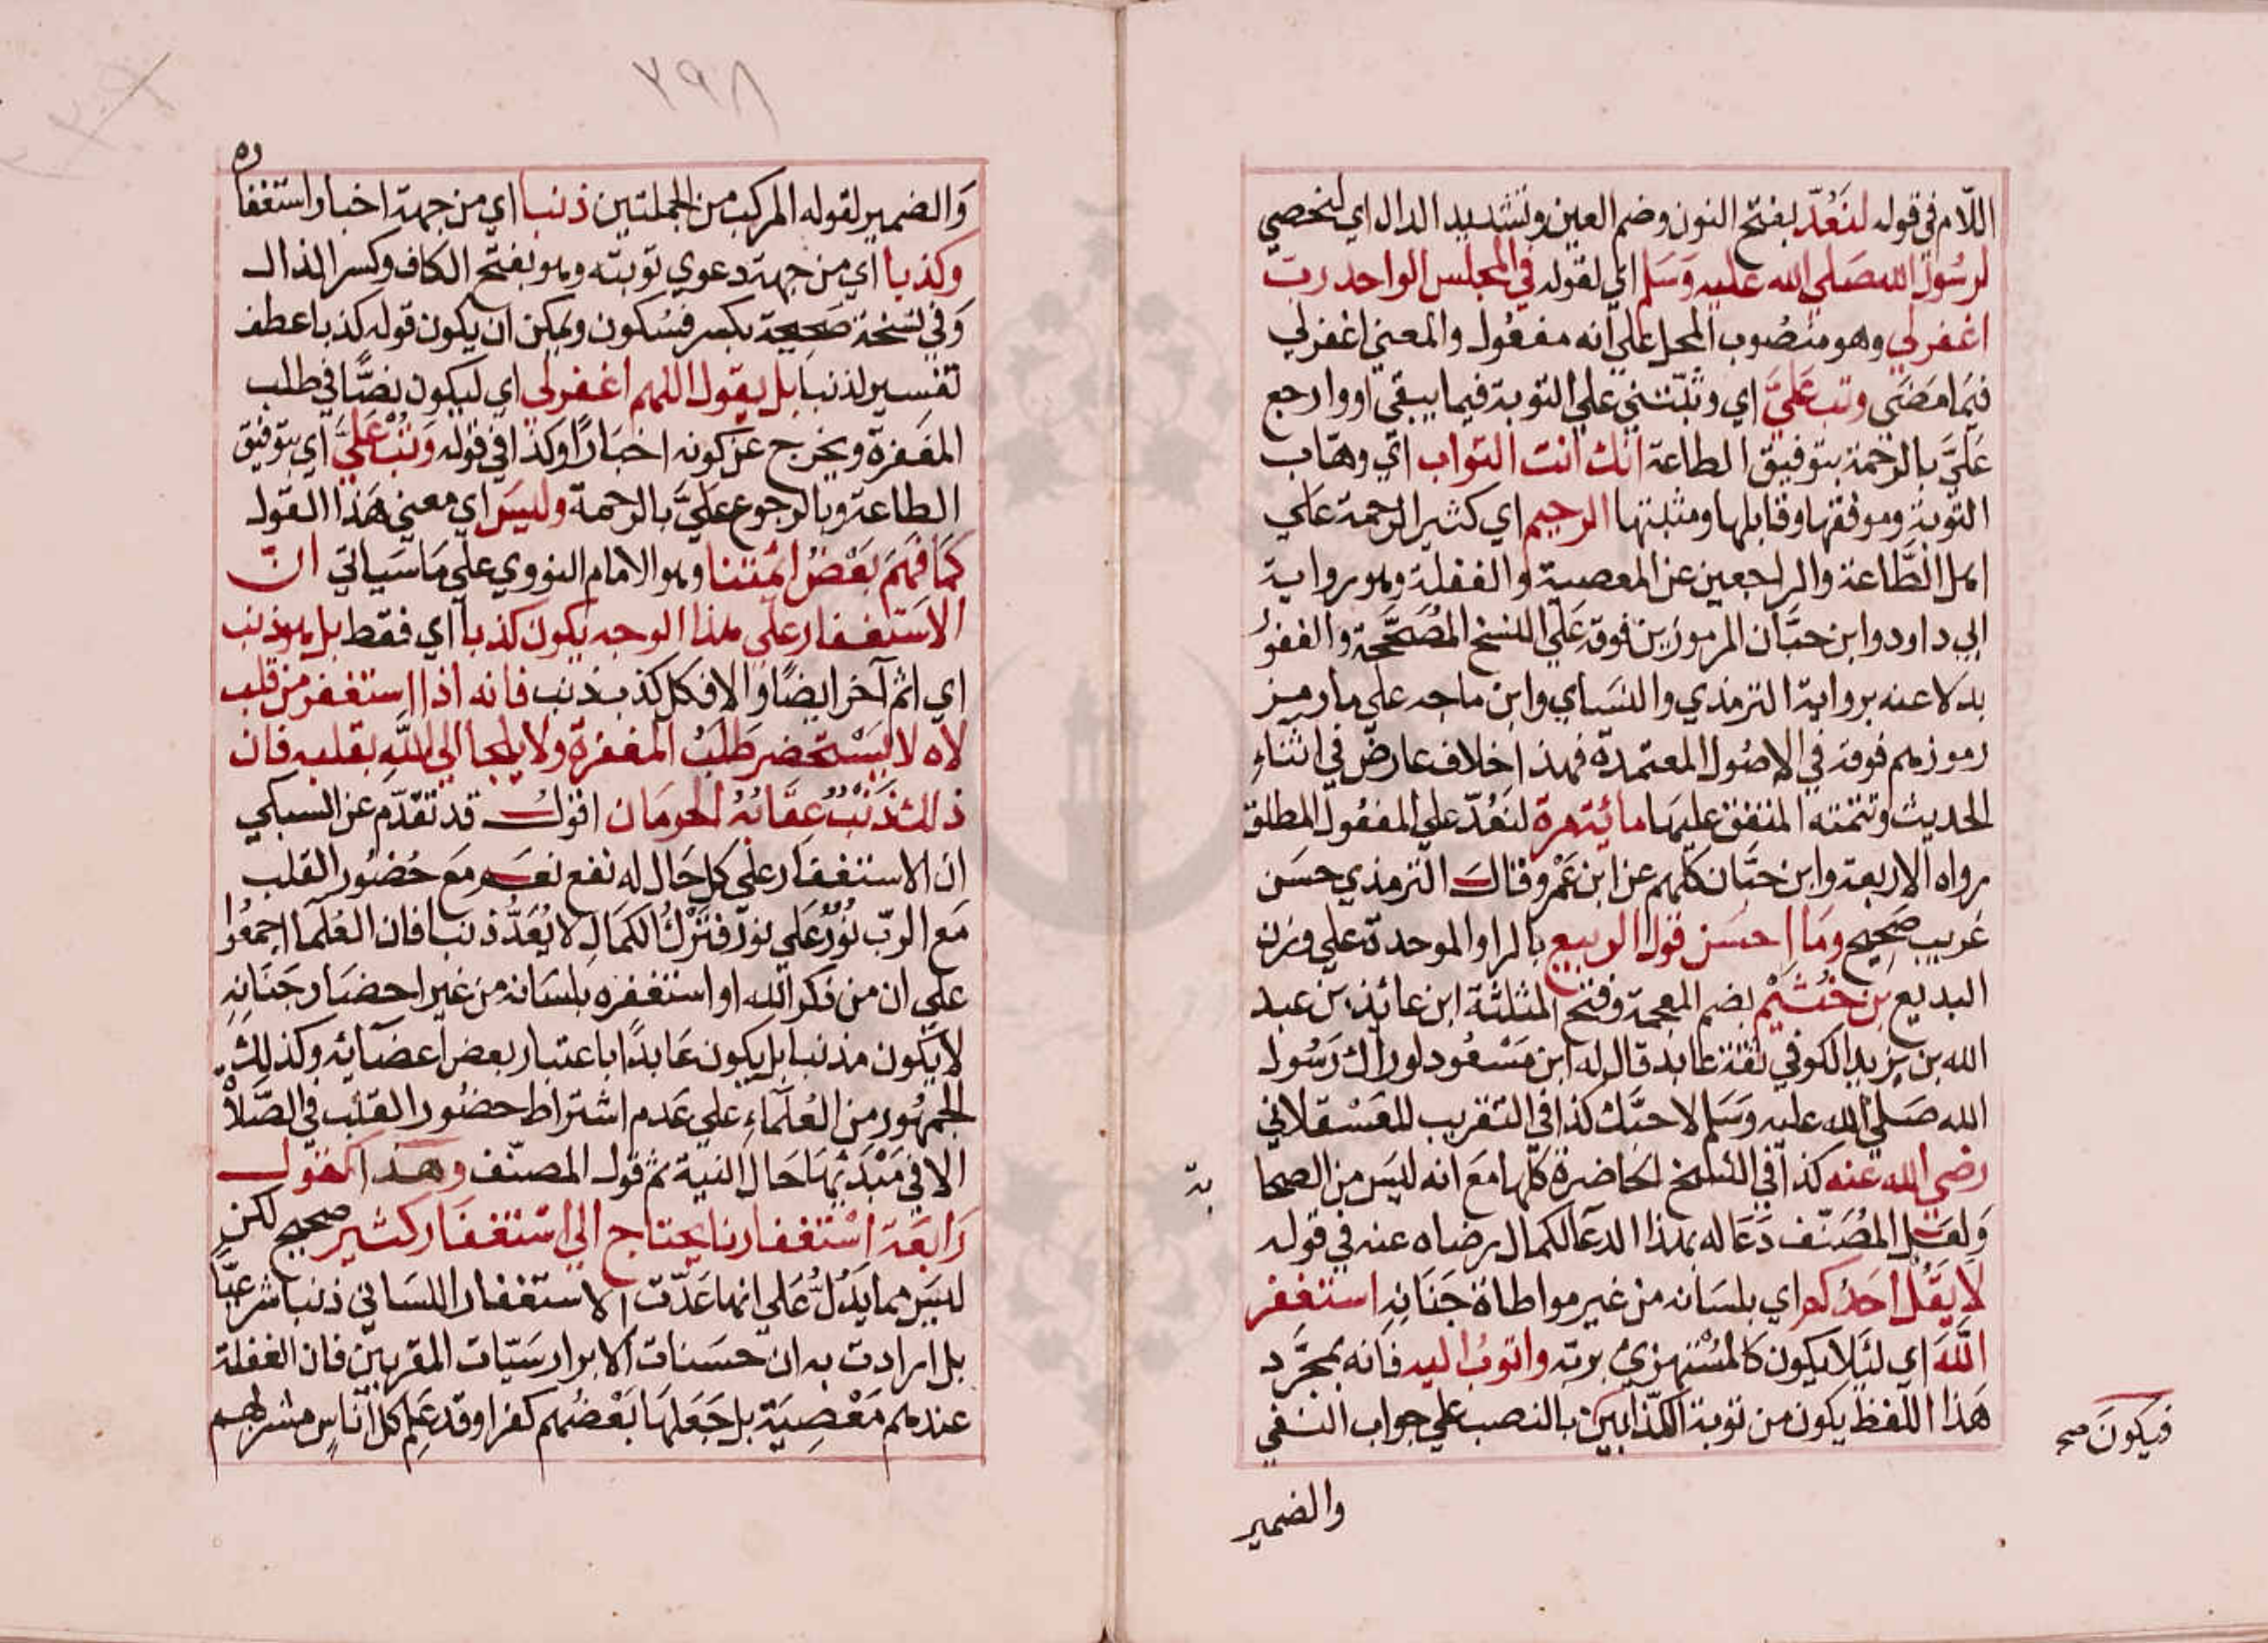 اللّام في قوله لنَعُدّ بفتح النون وضم العين وتشديد الدال اي لنحصي
لرسُول الله صَلي الله عليه وَسَلم اي لقوله في المجلس الواحد رب
اغفر لي وهو منصُوب المحل علي انه مفعُول والمعني اغفر لي
فيمَا مضَي وتب عَليَّ اي وثبّتني علي التوبة فيما يبقي او وارجع
عَليَّ بالرحمة بتوفيق الطاعة انك انت التواب اي وهّاب
التّوبة وموفقها وقابلها ومثبتها الرحيم اي كثير الرحمة علي
اهل الطَّاعة والراجعين عن المعصية والغفلة وهو رواية
ابي داود وابن حبَّان المرموزين فوقه عَلَي النسخ المُصَحَّحة والغفوُ
بدلا عنه برواية الترمذي والنسَاي وابن ماجه علي ما رمز
رموزهم فوقه في الاصُول المعتمدة فهذا خلاف عارض في اثناءِ
الحديث وتتمته المتفق عليهَا مائة مرة لنَعُدّ علي المفعُول المطلق
رواه الاربعة وابن حبَّان كلهم عن ابن عَمْرو وقال الترمذي حسَن
غريب صَحِيح ومَا احسَن قول الربيع بالرا والموحدة علي وزن
البديع بن خُثيْم بضم المعجمة وفتح المثلثة ابن عائذ بن عبد
الله بن يزيد الكوفي ثقة عابد قال له ابن مَسْعُود لو راك رَسُول
الله صَلي الله عليه وَسَلم لاحبَّك كذا في التقريب للعَسْقلاني
رضي الله عنه كذا في النسخ الحَاضرة كلّها مَعَ انه ليسَ من الصحا
بة
وَلعَل المُصَنّف دَعَا له بهذا الدعَا لكمال رضاه عنه في قوله
لا يَقُل احَدُكم اي بلسَانه من غير مواطاة جَنَانِهِ استغفر
اللّهَ اي لئَلا يكون كالمُسْتهزئ بربّه واتوبُ اليه فانه بمجَرَّد
هَذا اللفظ يكون من توبة الكذّابين بالنصب علي جواب النفي
فيكونَ صح
والضمير
٢٩٨
وَالضمير لقوله المركب من الجملتين ذنبا اي من جهة اخباره استغفا
ره
وكذبا اي من جهة دعوي توبته وهو بفتح الكاف وكسر الذال
وَفي نسْخة صَحِيحة بكسر فسُكون ويمكن ان يكون قوله كذبا عطف
تفسير لذنبا بل يقول اللهم اغفر لي اي ليكون نصًّا في طلب
المغفرة ويخرج عن كونه اخبارًا وكذا في قوله وَتُبْ عَليَّ اي بتوفيق
الطاعة وبالرجوع عَليَّ بالرحمة وليسَ اي معني هَذا القول
كمَا فهمَ بَعْضُ ائمتنا وهو الامام النووي علي مَا سَياتي انّ
الاسْتغفار علي هذا الوجه يكون كذباً اي فقط بل هو ذنب
اي اثم آخر ايضًا وَالا فكل كذب ذنب فانه اذا استغفر من قلب
لاه لا يَسْتحضر طَلبُ المغفرة ولا يلجا الي اللهِ بقلبه فان
ذلك ذَنْبٌ عِقابُهُ الحرمَان اقول قد تقدّم عن السبكي
ان الاستغفار علي كل حَال له نفع نعم مَعَ حُضُور القلب
مَع الربّ نُوْرٌ عَلي نور فتَرْكُ الكمَالِ لا يُعَدُّ ذنبا فان العُلمَا اجمعُوا
علي ان من ذكر الله او استغفره بلسَانه من غير احضَار جَنَانِهِ
لا يَكون مذنبا بل يكون عَابدًا باعتبار بعض اعضَائه وكذلك
الجمهُور من العُلمَاءِ علي عَدم اشتراط حضُور القلب في الصّلاة
الا في مَبْدَئِهَا حَال النية ثم قول المصنّف وهذا كقول
رَابعَة اسْتغفارنا يحتاج الي اسْتغفَار كثير صحيح لكن
ليسَ مما يَدُلُّ عَلي انها عَدّت الاستغفار اللسَاني ذنبا شرعيّا
بل ارادت به ان حسَنات الابرار سَيّات المقربين فان الغفلة
عندهم مَعْصِيَة بل جَعَلهَا بَعْضُهم كفرا وقد عَلِم كل اناسٍ مشربهم